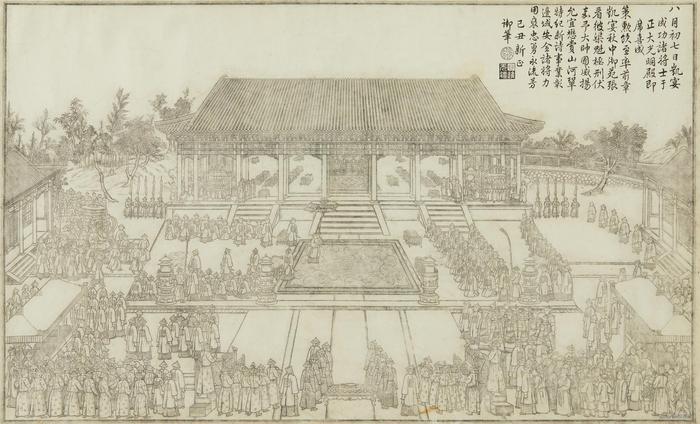 八月初七日凱宴
成功諸將士于
正大光明殿即
席喜成
策勲飲至率前章
凱宴秋中御苑張
看彼渠魁極刑伏
嘉予大帥國威揚
允宜懋賞山河鞏
特紀新詩事業彰
邊域安全諸將力
用襃忠勇永流芳
己丑新正
御筆